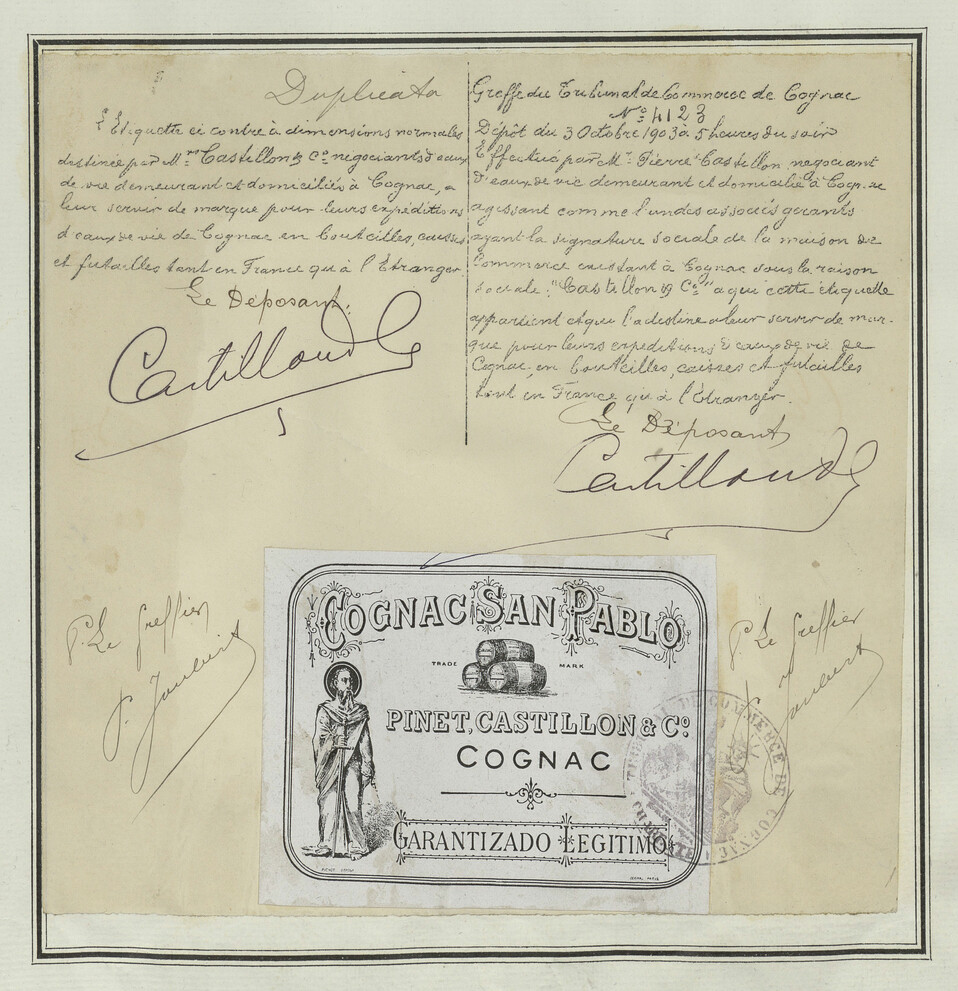 Duplicata
L'Etiquette ci contre à dimensions normales
destinée par M.rs Castillon & Co negociants d'eaux
de vie demeurant et domiciliés à Cognac, a
leur servir de marque pour leurs expéditions
d'eaux de vie de Cognac en bouteilles, caisses
et futailles tant en France qu'à l'Etranger
Le Déposant:
Castillon & Co
Greffe du Tribunal de Commerce de Cognac
No 4123
Dépôt du 3 Octobre 1903 à 5 heures du soir
Effectué par M.r Pierre Castillon negociant
d'eaux de vie demeurant et domicilié à Cognac
agissant comme l'un des associés gerants
ayant la signature sociale de la maison de
Commerce existant à Cognac sous la raison
sociale: "Castillon & Co" a qui cette étiquette
appartient et qui l'a destine a leur servir de mar-
que pour leurs expeditions d'eaux de vie de
Cognac en bouteilles, caisses et futailles
tant en France qu'à l'Etranger.
Le Déposant
Castillon & Co
P. Le Greffier
P. Joubert
P. Le Greffier
P. Joubert
COGNAC SAN PABLO
TRADE MARK
PINET, CASTILLON & Co.
COGNAC
GARANTIZADO LEGITIMO
TRIBUNAL DE COMMERCE DE COGNAC